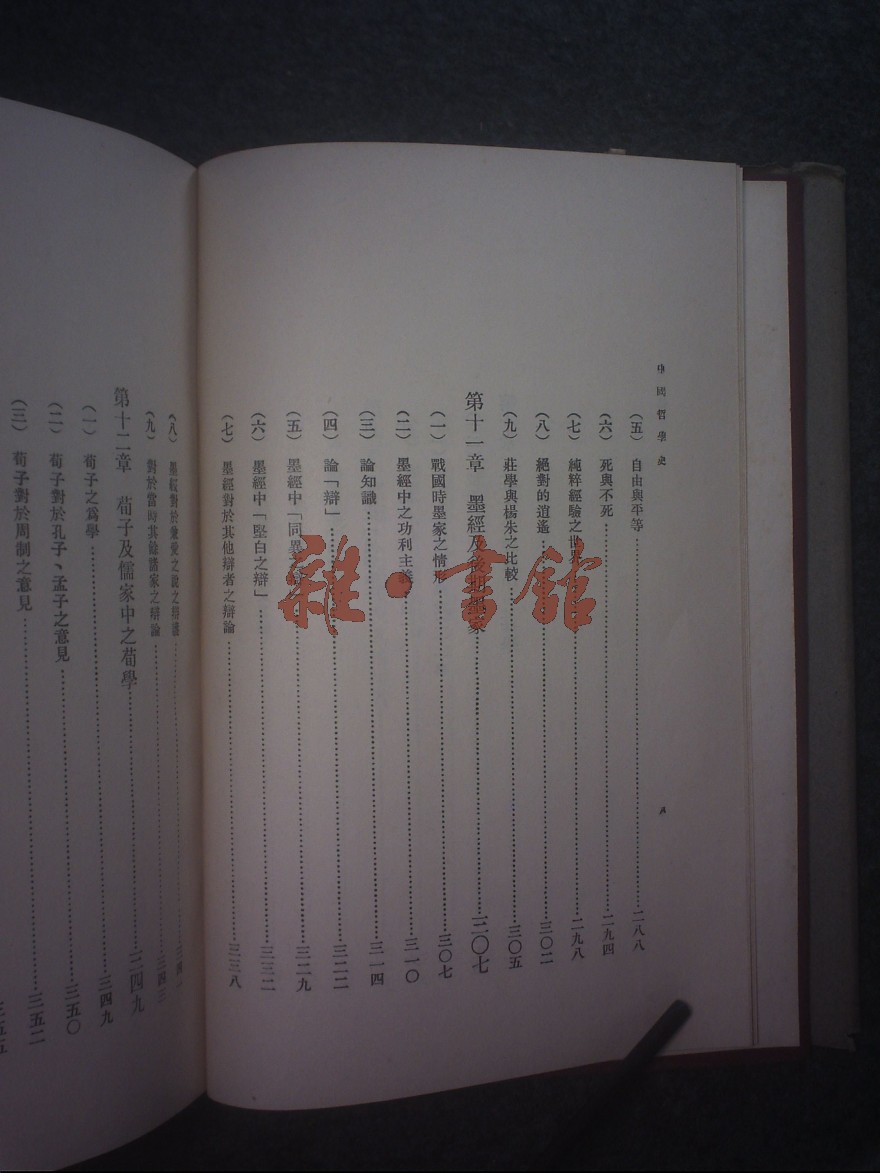 中國哲學史
八
（五） 自由與平等……二八八
（六） 死與不死……二九四
（七） 純粹經驗之世界……二九八
（八） 絕對的逍遙……三〇二
（九） 莊學與楊朱之比較……三〇五
第十一章 墨經及後期墨家……三〇七
（一） 戰國時墨家之情形……三〇七
（二） 墨經中之功利主義……三一〇
（三） 論知識……三一四
（四） 論「辯」……三二二
（五） 墨經中「同異……三二九
（六） 墨經中「堅白之辯」……三三二
（七） 墨經對於其他辯者之辯論……三三八
（八） 墨經對於兼愛之說之辯護……三四
（九） 對於當時其餘諸家之辯論……三四三
第十二章 荀子及儒家中之荀學……三四九
（一） 荀子之爲學……三四九
（二） 荀子對於孔子、孟子之意見……三五〇
（三） 荀子對於周制之意見……三五二
三五五
雜·書館